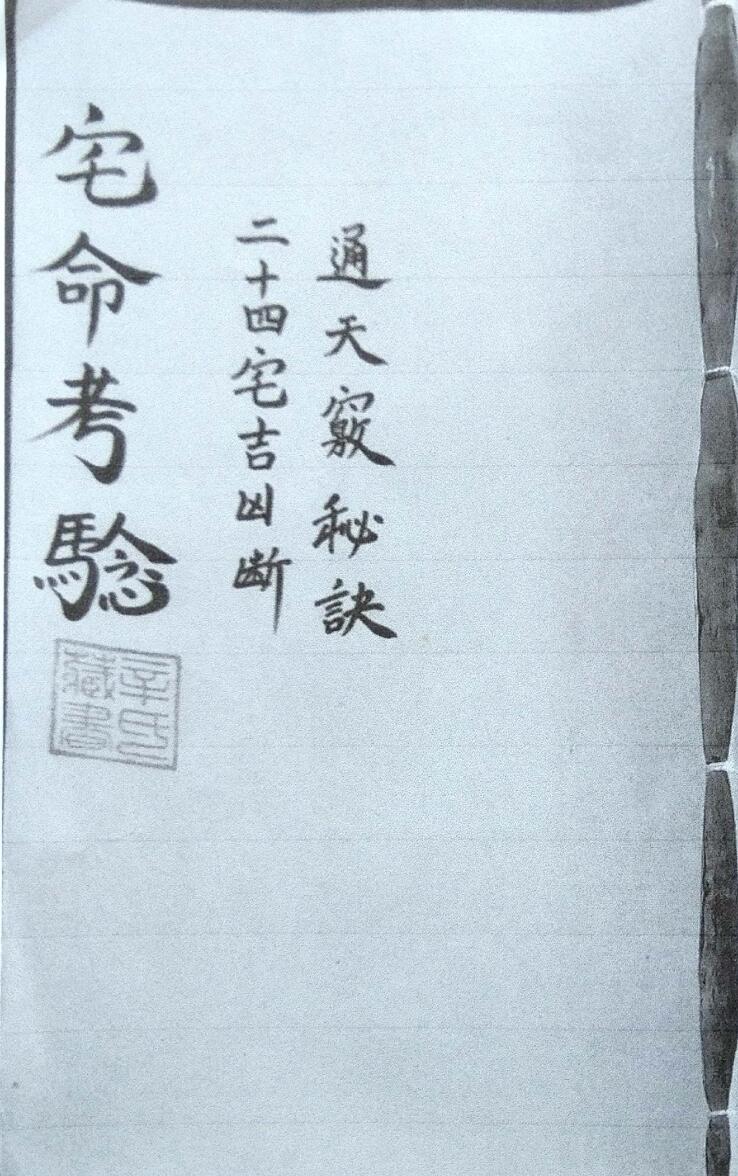 通天竅秘訣
二十四宅吉凶斷
宅命考騐
辛氏藏書